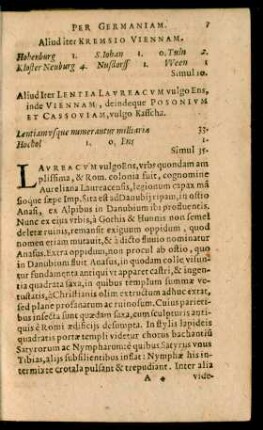 PER GERMANIAM. 5
Aliud iter KREMSIO VIENNAM.
Hohenburg 1. S. Iohan 1. 0. Tuln 2.
Kloster Neuburg 4. Nusdorff 1. Ween 1
Simul 10.
Aliud Iter LENTEA LAVREACVM vulgo Ens,
inde VIENNAM, deindeque POSONIVM
ET CASSOVIAM, vulgo Kaschca.
Lentiam vsque numerantur milliaria 33.
Hochof 1. 0. Ens 1.
Simul 35.
LAVREACVM vulgo Ens, vrbs quondam am
plissima, & Rom. colonia fuit, cognomine
Aureliana Laureacensis, legionum capax mā
sioque sæpe Imp. Sita est ad Danubij ripam, in ostio
Anasi, ex Alpibus in Danubium ibi profluentis.
Nunc ex eius vrbis, à Gothis & Hunnis non semel
deletæ ruinis, remansit exiguum oppidum, quod
nomen etiam mutauit, & à dicto fluuio nominatur
Anasus. Extra oppidum, non procul ab ostio, quo
in Danubium fluit Anasus, in quodam colle visun-
tur fundamenta antiqui vt apparet castri, & ingen-
tia quadrata saxa, in quibus templum summæ ve-
tustatis, à Christianis olim extructum adhuc extat,
sed plane profanatum ac ruinosum. Cuius parieti-
bus insecta sunt quædam saxa, cum sculpturis antiq-
quis è Romæ ædificijs desumpta. In stylis lapideis
quadratis portæ templi videtur chorus bachantiū
Satyrorum ac Nympharum: è quibus Satyrus vnus
Tibias, alijs subsilientibus inflat: Nymphæ his in-
termixtæ crotala pulsant & trepudiant. Inter alia
A 4 vide-